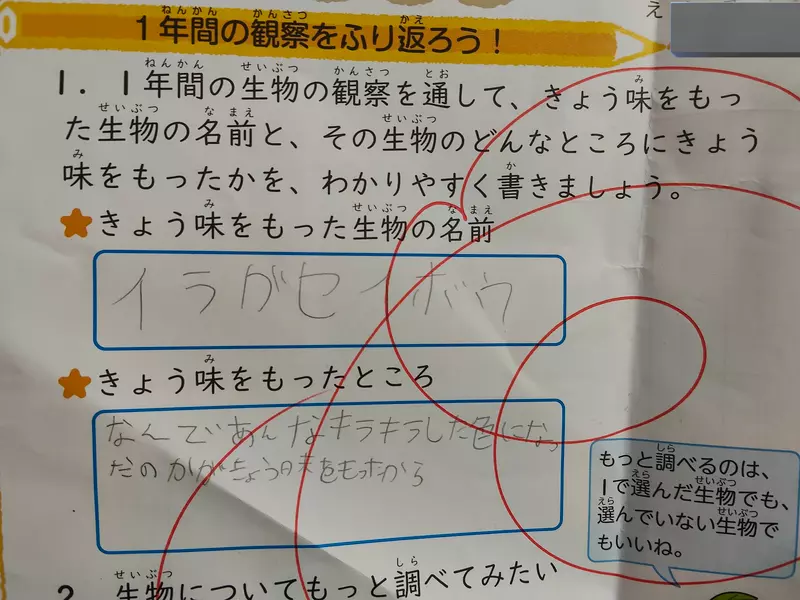 1年間の観察をふり返ろう!
1. 1年間の生物の観察を通して、きょう味をもっ
た生物の名前と、その生物のどんなところにきょう
味をもったかを、わかりやすく書きましょう。
きょう味をもった生物の名前
イラガセイボウ
きょう味をもったところ
なんであんなキラキラした色になっ
だのかがきょう味をもったから
もっと調べるのは、
1で選んだ生物でも、
選んでいない生物で
もいいね。
2 生物についてもっと調べてみたい